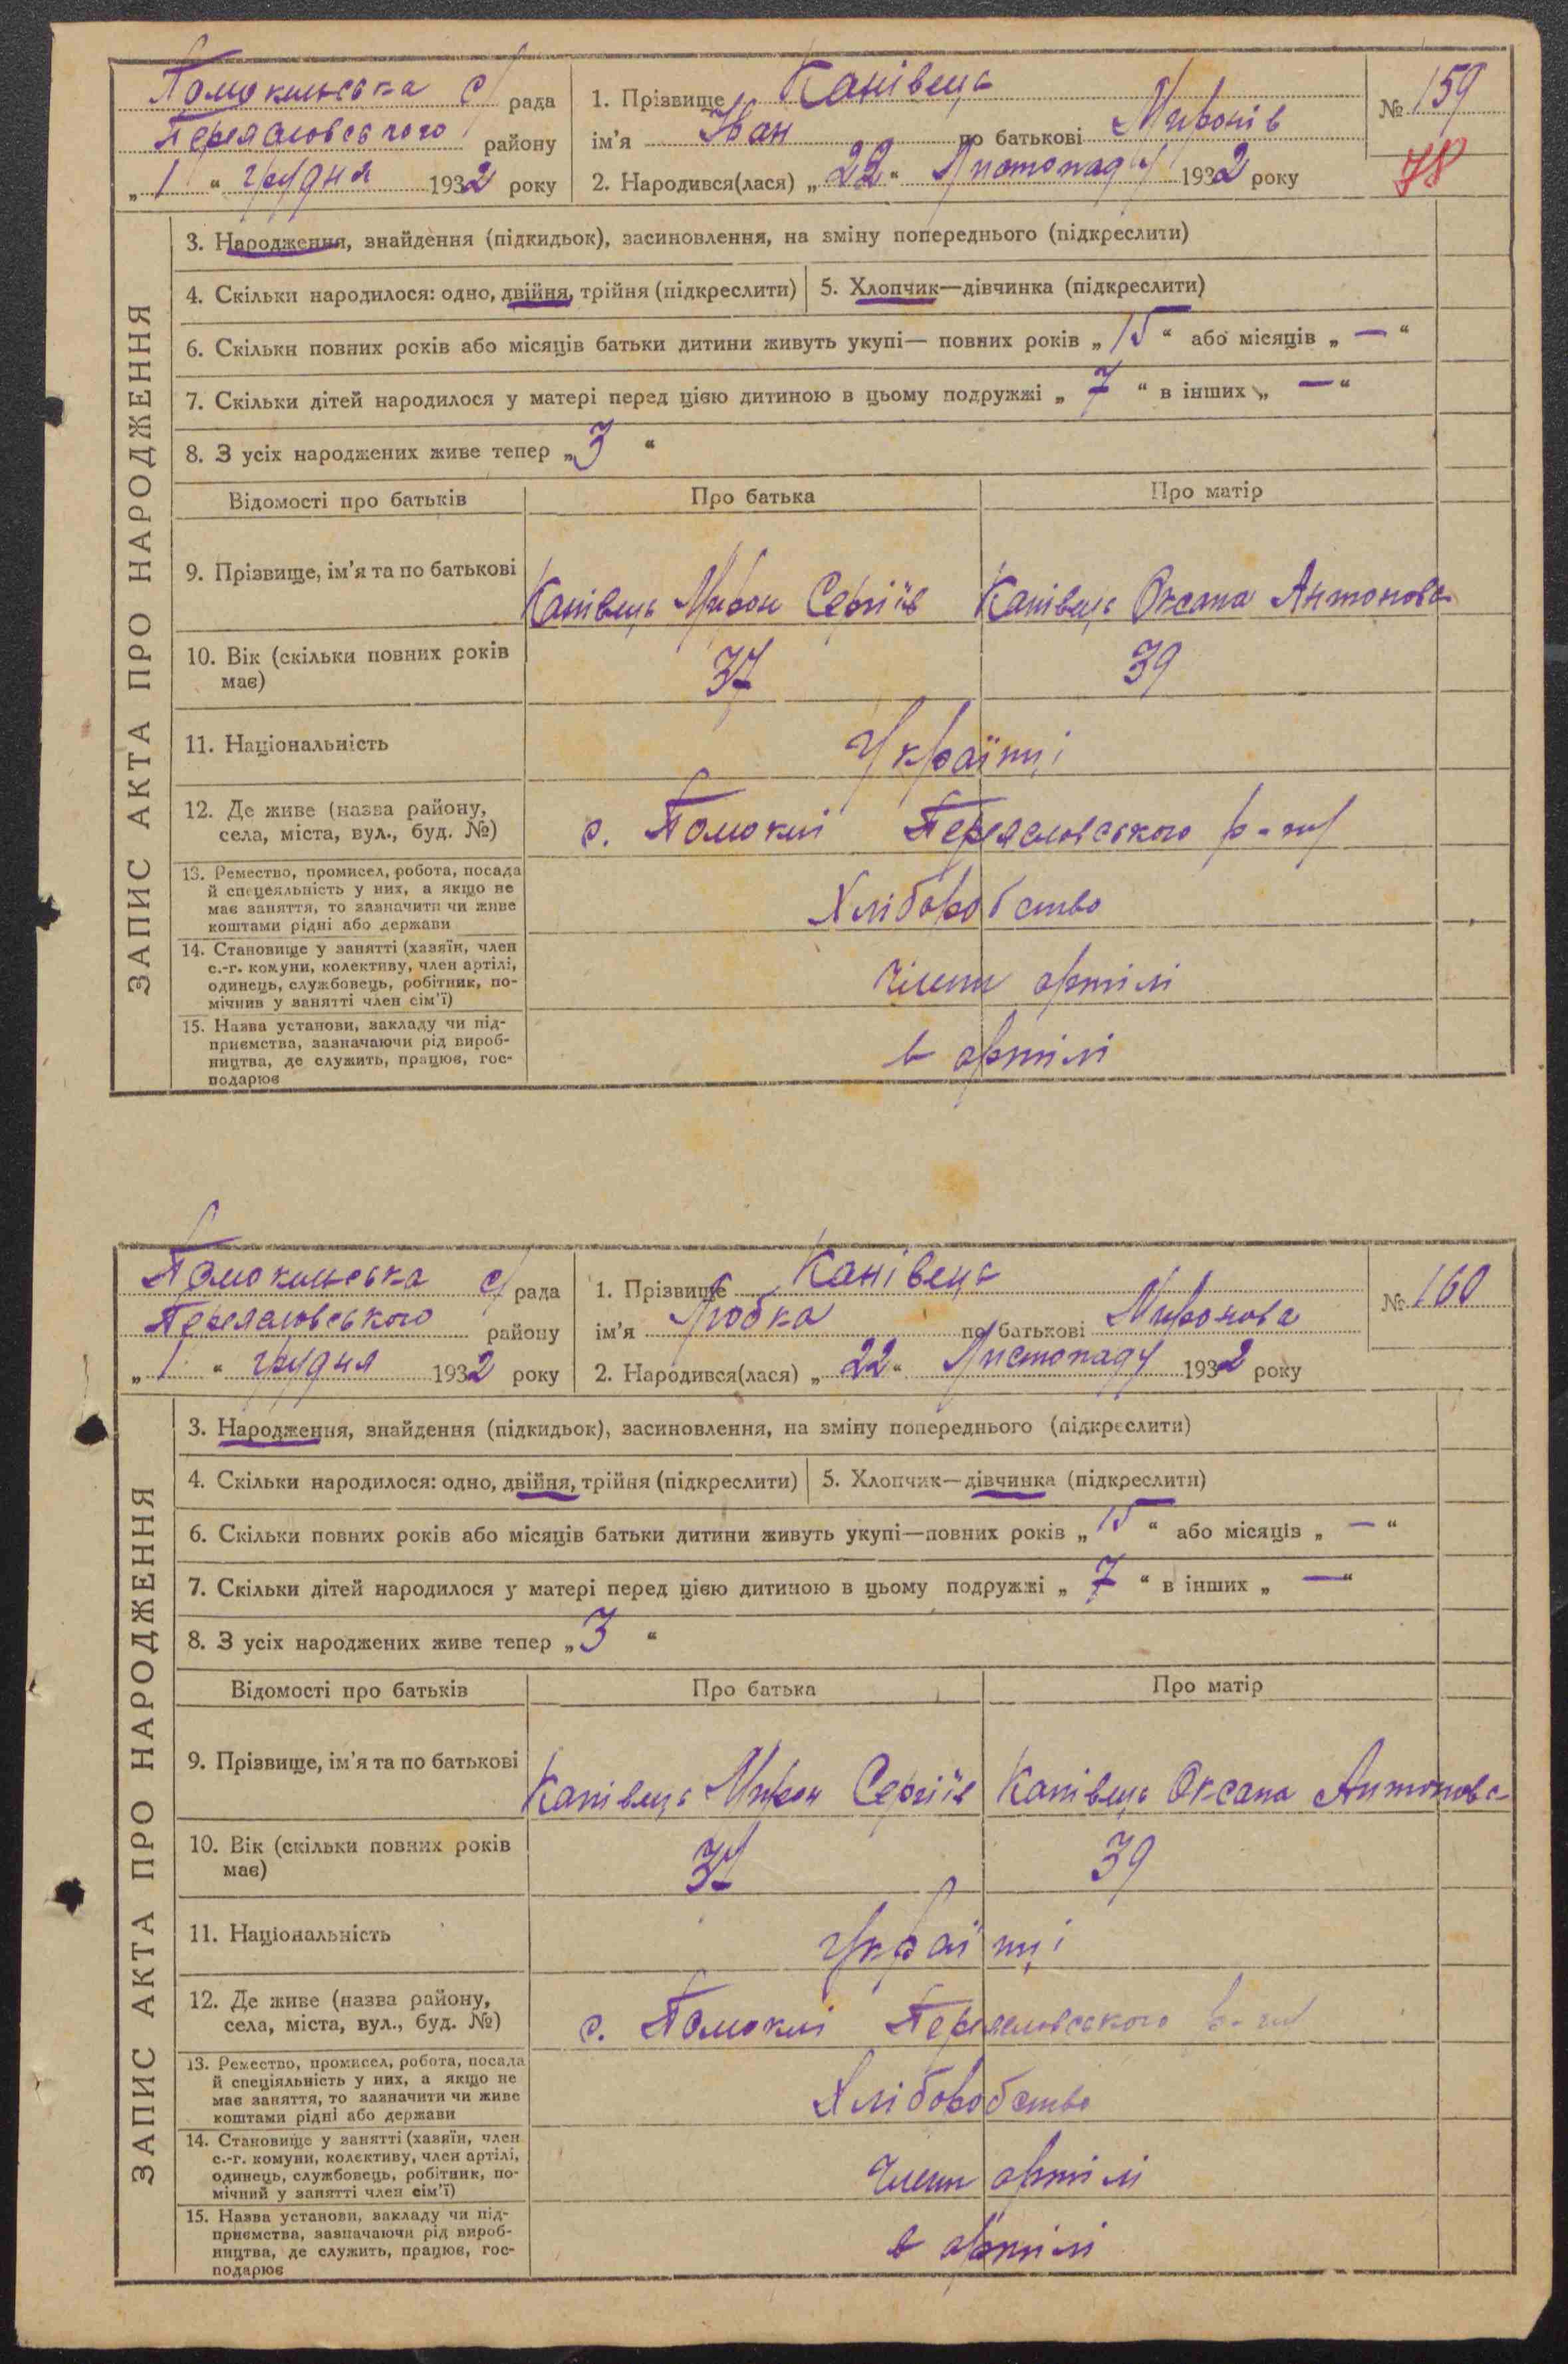 Помокильська с/рада
Переяславського району
„1“ грудня 1932 року
1. Прізвище Канівець
ім'я Іван по батькові Миронів
2. Народився(лася) „22“ Листопаду 1932 року
№ 159
78
ЗАПИС АКТА ПРО НАРОДЖЕННЯ
3. Народження, знайдення (підкидьок), засиновлення, на зміну попереднього (підкреслити)
4. Скільки народилося: одно, двійня, трійня (підкреслити) 5. Хлопчик—дівчинка (підкреслити)
6. Скільки повних років або місяців батьки дитини живуть укупі— повних років „15“ або місяців „—“
7. Скільки дітей народилося у матері перед цією дитиною в цьому подружжі „7“ в інших „—“
8. З усіх народжених живе тепер „3“
Відомості про батьків Про батька Про матір
9. Прізвище, ім'я та по батькові Канівець Мирон Сергіїв Канівець Оксана Антонова
10. Вік (скільки повних років
має) 37 39
11. Національність Українці
12. Де живе (назва району,
села, міста, вул., буд. №) с. Помоклі Переяславського р-ну
13. Ремество, промисел, робота, посада
й спецеяльність у них, а якщо не
має заняття, то зазначити чи живе
коштами рідні або держави
Хліборобство
14. Становище у занятті (хазяїн, член
с.-г. комуни, колективу, член артілі,
одинець, службовець, робітник, по-
мічнив у занятті член сім'ї)
Члени артілі
15. Назва установи, закладу чи під-
приємства, зазначаючи рід вироб-
ництва, де служить, працює, гос-
подарює
в артілі
Помокильська с/рада
Переяславського району
„1“ грудня 1932 року
1. Прізвище Канівець
ім'я по батькові Миронова
2. Народився(лася) „22“ Листопаду 1932 року
№ 160
ЗАПИС АКТА ПРО НАРОДЖЕННЯ
3. Народження, знайдення (підкидьок), засиновлення, на зміну попереднього (підкреслити)
4. Скільки народилося: одно, двійня, трійня (підкреслити) 5. Хлопчик—дівчинка (підкреслити)
6. Скільки повних років або місяців батьки дитини живуть укупі—повних років „15“ або місяців „—“
7. Скільки дітей народилося у матері перед цією дитиною в цьому подружжі „7“ в інших „—“
8. З усіх народжених живе тепер „3“
Відомості про батьків Про батька Про матір
9. Прізвище, ім'я та по батькові Канівець Мирон Сергіїв Канівець Оксана Антонова
10. Вік (скільки повних років
має) 37 39
11. Національність Українці
12. Де живе (назва району,
села, міста, вул., буд. №) с. Помоклі Переяславського р-ну
13. Ремество, промисел, робота, посада
й спеціяльність у них, а якщо не
має заняття, то зазначити чи живе
коштами рідні або держави
Хліборобство
14. Становище у занятті (хазяїн, член
с.-г. комуни, колективу, член артілі,
одинець, службовець, робітник, по-
мічний у занятті член сім'ї)
Члени артілі
15. Назва установи, закладу чи під-
приємства, зазначаючи рід вироб-
ництва, де служить, працює, гос-
подарює
в артілі